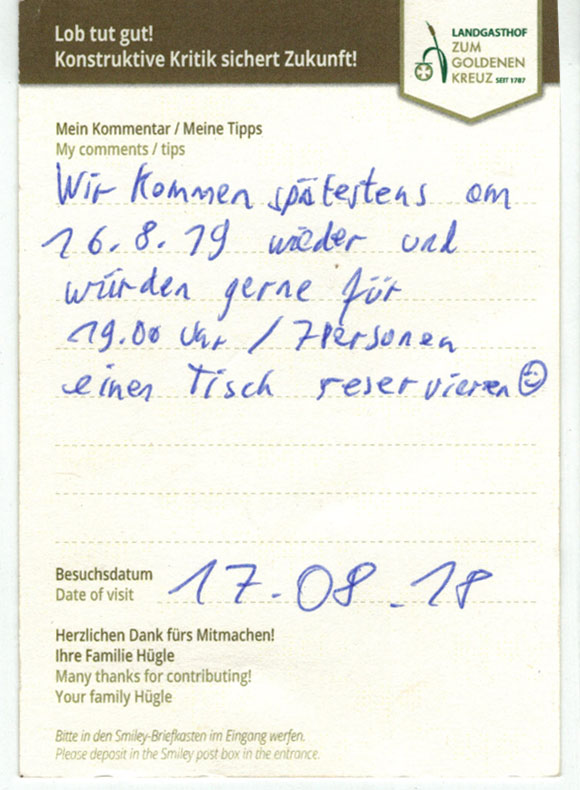 Lob tut gut!
Konstruktive Kritik sichert Zukunft!
LANDGASTHOF
ZUM
GOLDENEN
KREUZ SEIT 1787
Mein Kommentar / Meine Tipps
My comments / tips
Wir kommen spätestens am
16.8.19 wieder und
würden gerne für
19.00 Uhr / 7 Personen
einen Tisch reservieren☺
Besuchsdatum
Date of visit
17.08.18
Herzlichen Dank fürs Mitmachen!
Ihre Familie Hügle
Many thanks for contributing!
Your family Hügle
Bitte in den Smiley-Briefkasten im Eingang werfen.
Please deposit in the Smiley post box in the entrance.